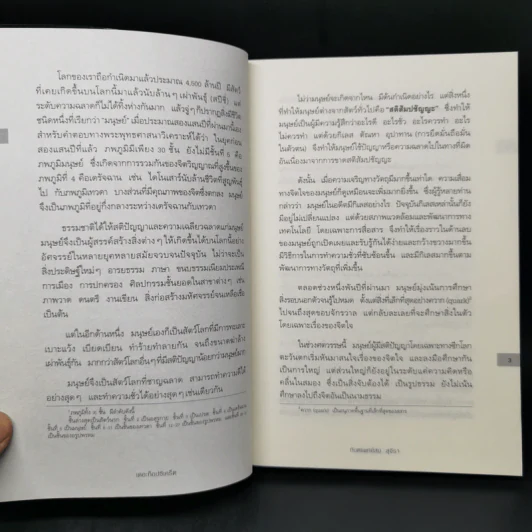 โลกของเราถือกำเนิดมาแล้วประมาณ 4,500 ล้านปี มีสัตว์
ที่เคยเกิดขึ้นบนโลกนี้มาแล้วนับล้านๆ เผ่าพันธุ์ (สปีชี่) แต่
ระดับความฉลาดก็ไม่ได้ทิ้งห่างกันมาก แล้วจู่ๆ ก็ปรากฏสิ่งมีชีวิต
ชนิดหนึ่งที่เรียกว่า 'มนุษย์' เมื่อประมาณสองแสนปีที่ผ่านมานี้เอง
สำหรับคำตอบทางพระพุทธศาสนาวิเคราะห์ได้ว่า ในยุคก่อน
สองแสนปีที่แล้ว ภพภูมิมีเพียง 30 ชั้น ยังไม่มีชั้นที่ 5 คือ
ภพภูมิมนุษย์ ซึ่งเกิดจากการรวมกันของจิตวิญญาณที่สูงขึ้นของ
ภพภูมิที่ 4 คือเดรัจฉาน เช่น ไดโนเสาร์นับล้านชีวิตที่สูญพันธุ์
ไป กับภพภูมิเทวดา บางส่วนที่มีคุณภาพของจิตซึ่งตกลง มนุษย์
จึงเป็นภพภูมิที่อยู่กึ่งกลางระหว่างเดรัจฉานกับเทวดา
ธรรมชาติได้ให้สติปัญญาและความเฉลียวฉลาดแก่มนุษย์
มนุษย์จึงเป็นผู้สรรค์สร้างสิ่งต่างๆ ให้เกิดขึ้นได้บนโลกนี้อย่าง
อัศจรรย์ในหลายยุคหลายสมัยจวบจนปัจจุบัน ไม่ว่าจะเป็น
สิ่งประดิษฐ์ใหม่ๆ อารยธรรม ภาษา ขนบธรรมเนียมประเพณี
การเมือง การปกครอง ศิลปกรรมชั้นยอดในสาขาต่างๆ เช่น
ภาพวาด ดนตรี งานเขียน สิ่งก่อสร้างมหัศจรรย์จนเหลือเชื่อ
เป็นต้น
แต่ในอีกด้านหนึ่ง มนุษย์เองก็เป็นสัตว์โลกที่มีการทะเลาะ
เบาะแว้ง เบียดเบียน ทำร้ายทำลายกัน จนถึงขนาดฆ่าล้าง
เผ่าพันธุ์กัน มากกว่าสัตว์โลกอื่นๆ ที่มีสติปัญญาน้อยกว่ามนุษย์มาก
มนุษย์จึงเป็นสัตว์โลกที่ชาญฉลาด สามารถทำความดีได้
อย่างสุดๆ และทำความชั่วได้อย่างสุดๆ เช่นเดียวกัน
ไม่ว่ามนุษย์จะเกิดจากไหน มีต้นกำเนิดอย่างไร แต่สิ่งหนึ่ง
ที่ทำให้มนุษย์ต่างจากสัตว์ทั่วไปคือ "สติสัมปชัญญะ" ซึ่งทำให้
มนุษย์เป็นผู้มีความรู้สึกว่าอะไรดี อะไรชั่ว อะไรควรทำ อะไร
ไม่ควรทำ แต่ด้วยกิเลส ตัณหา อุปาทาน (การยึดมั่นถือมั่น
ในตัวตน) จึงทำให้มนุษย์ใช้ปัญญาหรือความฉลาดไปในทางที่ผิด
อันเนื่องมาจากการขาดสติสัมปชัญญะ
ดังนั้น เมื่อความเจริญทางวัตถุมีมากขึ้นเท่าใด ความเสื่อม
ทางจิตใจของมนุษย์ก็ดูเหมือนจะเพิ่มมากยิ่งขึ้น ซึ่งผู้รู้หลายท่าน
กล่าวว่า มนุษย์ในอดีตมีกิเลสอย่างไร ปัจจุบันกิเลสเหล่านั้นก็ยัง
มีอยู่ไม่เปลี่ยนแปลง แต่ด้วยสภาพแวดล้อมและพัฒนาการทาง
เทคโนโลยี โดยเฉพาะการสื่อสาร จึงทำให้เรื่องราวในด้านลบ
ของมนุษย์ถูกเปิดเผยและรับรู้กันได้ง่ายและกว้างขวางมากขึ้น
มีวิธีการในการทำความชั่วที่ซับซ้อนขึ้น และมีกิเลสมากขึ้นตาม
พัฒนาการทางวัตถุที่เพิ่มขึ้น
ตลอดช่วงชีวิตหมื่นปีที่ผ่านมา มนุษย์มุ่งเน้นการศึกษา
สิ่งรอบนอกตัวจนรู้ไปหมด ตั้งแต่สิ่งที่เล็กที่สุดอย่างควาก (quark)
ไปจนถึงสุดขอบจักรวาล แต่กลับละเลยที่จะศึกษาสิ่งในตัว
โดยเฉพาะเรื่องของจิตใจ
ในช่วงศตวรรษนี้ มนุษย์ผู้มีสติปัญญาโดยเฉพาะทางซีกโลก
ตะวันตกเริ่มหันมาสนใจเรื่องของจิตใจ และลงมือศึกษากัน
เป็นการใหญ่ แต่ส่วนใหญ่ก็ยังอยู่ในระดับแค่ความคิดหรือ
คลื่นในสมอง ซึ่งเป็นสิ่งจับต้องได้ เป็นรูปธรรม ยังไม่เน้น
ศึกษาลงไปถึงจิตอันเป็นนามธรรม
3
เดอะท็อปซีเคร็ต
ทันตแพทย์สม สุจีรา